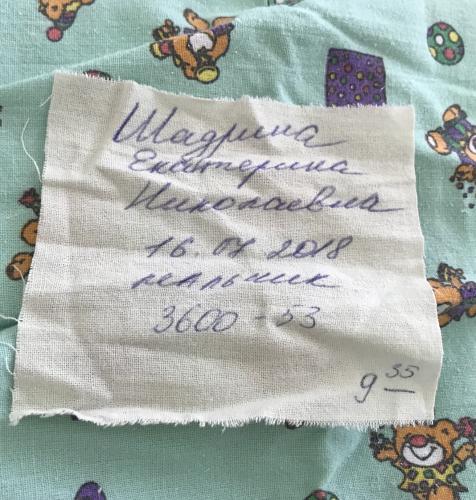 Шадрина
Екатерина
Николаевна
16.07 2018
мальчик
3600 - 53
9 35